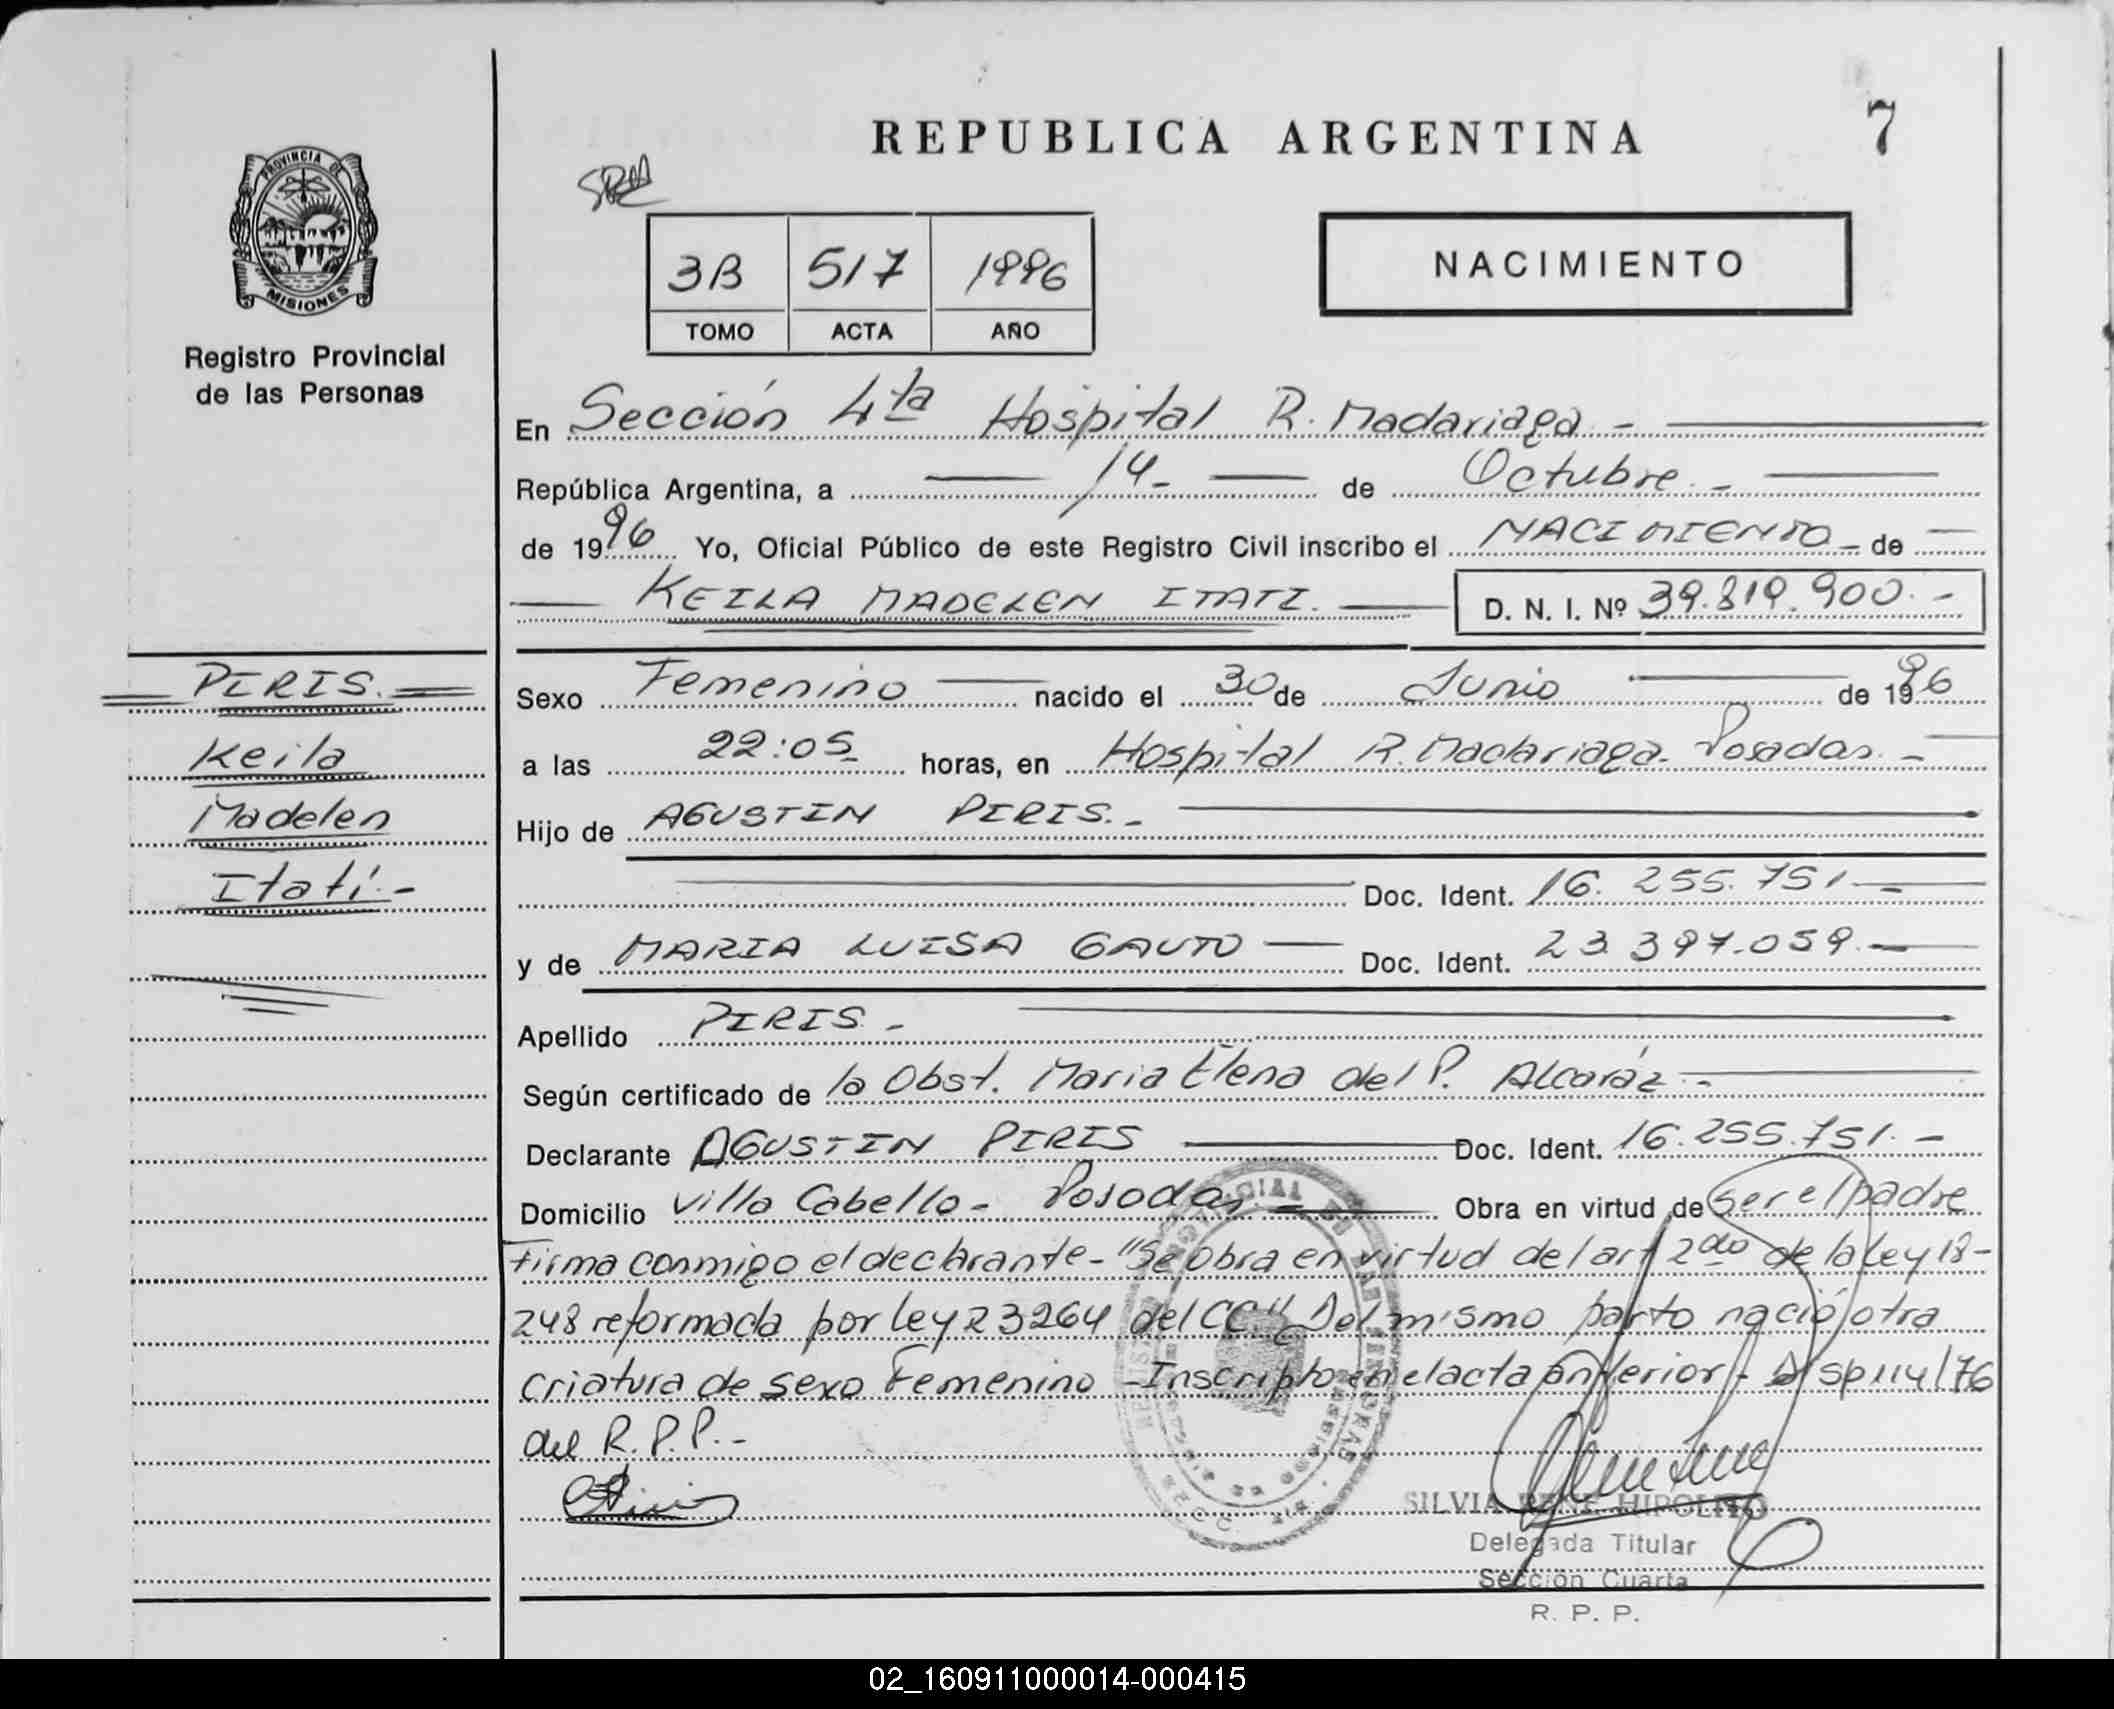 REPUBLICA ARGENTINA
7
PROVINCIA DE
MISIONES
Registro Provincial
de las Personas
3B 517 1996
TOMO ACTA AÑO
NACIMIENTO
En Sección 4ta Hospital R. Madariaga.-
República Argentina, a 14- de Octubre.-
de 1996 Yo, Oficial Público de este Registro Civil inscribo el NACIMIENTO- de
KEILA MADELEN ITATI. D. N. I. Nº 39.819.900.-
PIRIS.
Keila
Madelen
Itatí.-
Sexo Femenino nacido el 30 de Junio de 1996
a las 22:05 horas, en Hospital R. Madariaga- Posadas.-
Hijo de AGUSTIN PIRIS.-
Doc. Ident. 16.255.751.-
y de MARIA LUISA GAUTO Doc. Ident. 23.397.059.-
Apellido PIRIS-
Según certificado de la Obst. Maria Elena del P. Alcaráz-
Declarante AGUSTIN PIRIS Doc. Ident. 16.255.751.-
Domicilio Villa Cabello- Posadas- Obra en virtud de ser el padre
Firma conmigo el declarante- "Se obra en virtud del art 2do de la ley 18-
248 reformada por ley 23264 del CC" Del mismo parto nació otra
criatura de sexo Femenino -Inscripto en el acta anterior- Disp 114/76
del R.P.P.-
SILVIA RENE HIPOLITO
Delegada Titular
Sección Cuarta
R. P. P.
02_160911000014-000415